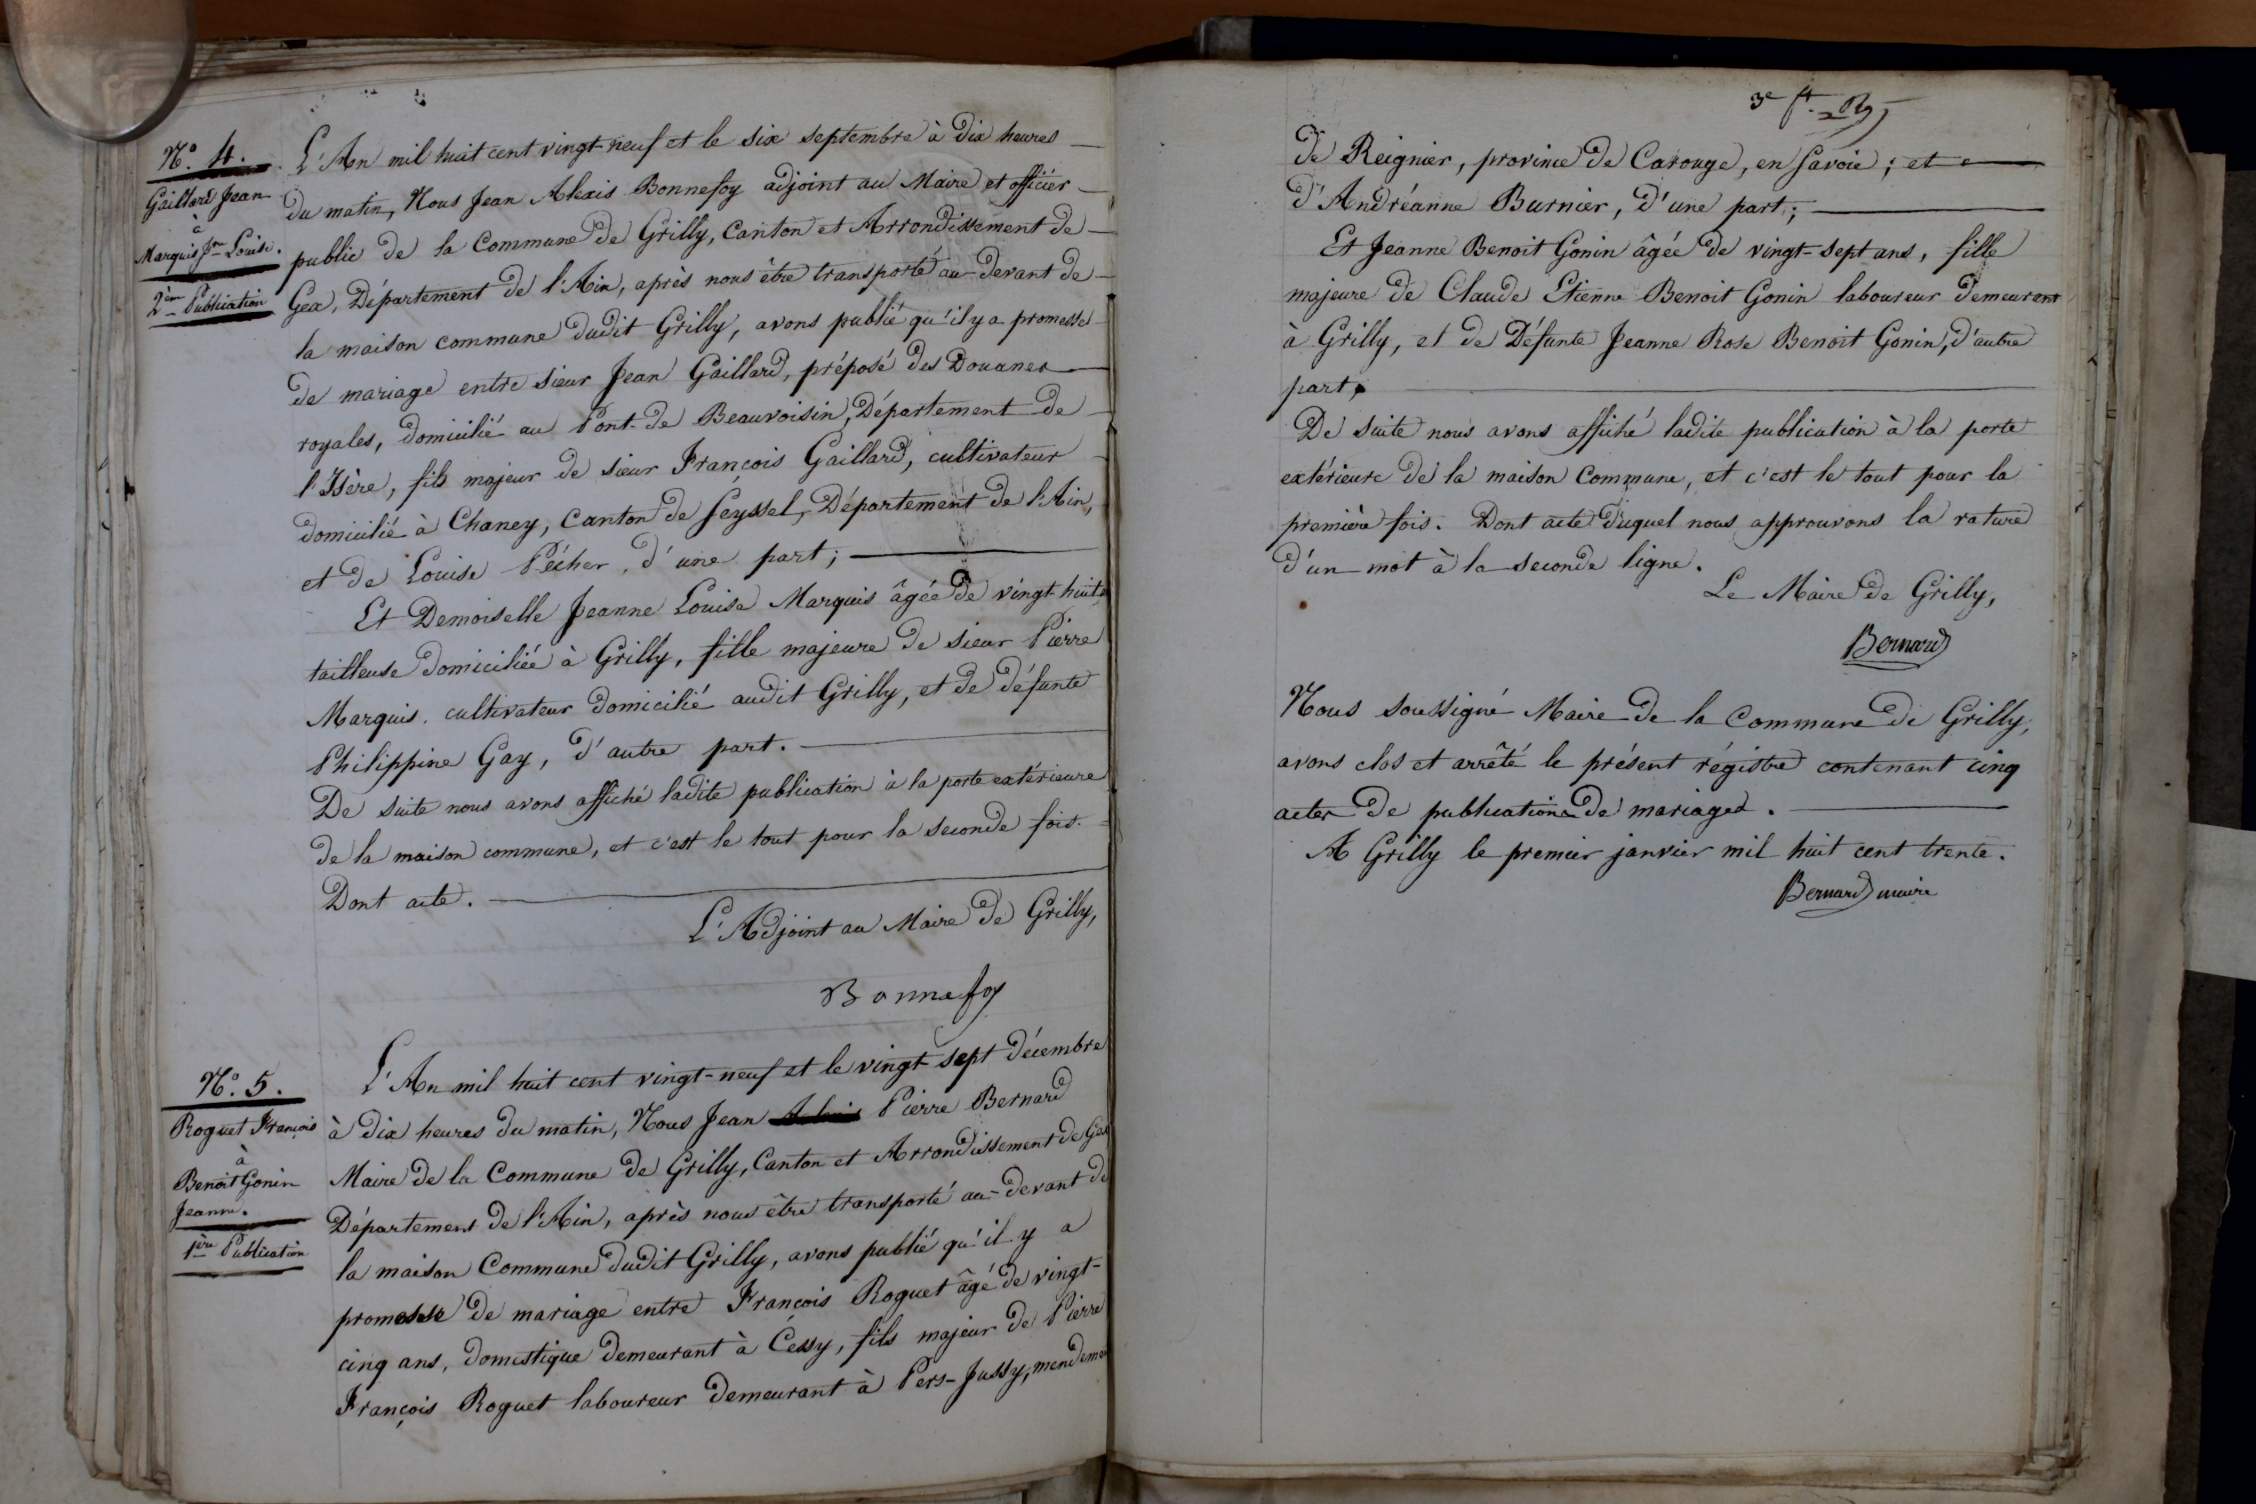 N.º 4.
Gaillard Jean
à
Marquis Jne Louise.
2ème Publication
L'An mil huit cent vingt-neuf et le six septembre à dix heures
du matin, Nous Jean Alexis Bonnefoy adjoint au Maire et officier
public de la Commune de Grilly, Canton et Arrondissement de
Gex, Département de l'Ain, après nous être transporté au-devant de
la maison commune dudit Grilly, avons publié qu'il y a promesse
de mariage entre sieur Jean Gaillard, préposé des Douanes
royales, domicilié au Pont-de Beauvoisin, Département de
l'Isère, fils majeur de sieur François Gaillard, cultivateur
domicilié à Chaney, Canton de Seyssel, Département de l'Ain,
et de Louise Pécher, d'une part;
Et Demoiselle Jeanne Louise Marquis âgée de vingt-huit
tailleuse domiciliée à Grilly, fille majeure de sieur Pierre
Marquis. cultivateur domicilié audit Grilly, et de défunte
Philippine Gay, d'autre part.
De suite nous avons affiché ladite publication à la porte extérieure
de la maison commune, et c'est le tout pour la seconde fois.
Dont acte.
L'Adjoint au Maire de Grilly,
Bonnefoy
N.º 5.
Roguet François
à
Benoit Gonin
Jeanne.
1ère Publication
L'An mil huit cent vingt-neuf et le vingt-sept décembre
à dix heures du matin, Nous Jean Alexis Pierre Bernard
Maire de la Commune de Grilly, Canton et Arrondissement de Gex
Département de l'Ain, après nous être transporté au-devant de
la maison Commune dudit Grilly, avons publié qu'il y a
promesse de mariage entre François Roguet âgé de vingt-
cinq ans, domestique demeurant à Cessy, fils majeur de Pierre
François Roguet laboureur demeurant à Pers-Jussy, mendeme
3e ft.
de Reignier, province de Carouge, en Savoie; et
d'Andréanne Burnier, d'une part;
Et Jeanne Benoit Gonin âgée de vingt-sept ans, fille
majeure de Claude Etienne Benoit Gonin laboureur demeurant
à Grilly, et de Défunte Jeanne Rose Benoit Gonin, d'autre
part,
De suite nous avons affiché ladite publication à la porte
extérieure de la maison Commune, et c'est le tout pour la
première fois. Dont acte duquel nous approuvons la rature
d'un mot à la seconde ligne.
Le Maire de Grilly,
Bernard
Nous soussigné Maire de la Commune de Grilly,
avons clos et arrêté le présent régistre contenant cinq
actes de publications de mariages.
A Grilly le premier janvier mil huit cent trente.
Bernard maire